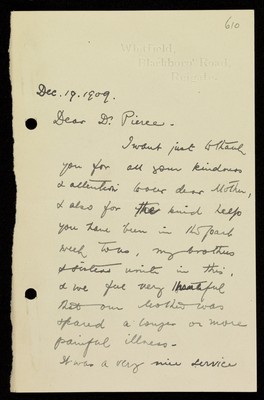 610
Whitfield,
Blackburn Road,
Dec. 19. 1909.
Dear Dr. Pierce -
I want just to thank
you for all your kindness
& attention to our dear Mother,
& also for the kind help
you have been in this past
week to us, my brothers
& sisters unite in this,
& we feel very thankful
that our Mother was
spared a longer or more
painful illness -
It was a very nice service